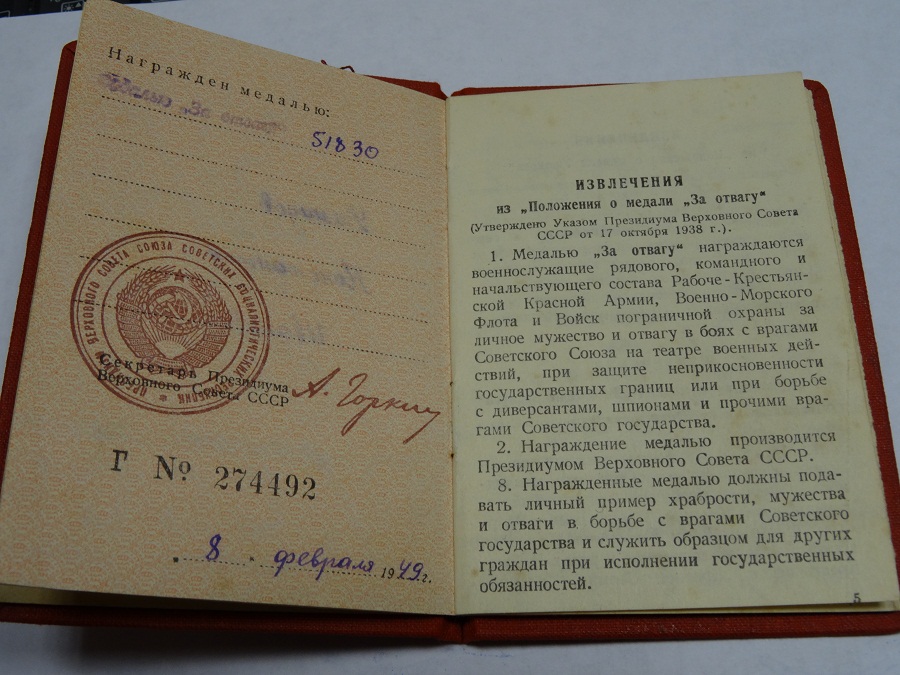 Награжден медалью:
Медалью „За отвагу"
51830
ПРЕЗИДИУМ ВЕРХОВНОГО СОВЕТА СОЮЗА СОВЕТСКИХ СОЦИАЛИСТИЧЕСКИХ РЕСПУБЛИК
Секретарь Президиума
Верховного Совета СССР
А. Горкин
Г № 274492
8 февраля 1949 г.
ИЗВЛЕЧЕНИЯ
из „Положения о медали „За отвагу"
(Утверждено Указом Президиума Верховного Совета
СССР от 17 октября 1938 г.).
1. Медалью „За отвагу" награждаются
военнослужащие рядового, командного и
начальствующего состава Рабоче-Крестьян-
ской Красной Армии, Военно-Морского
Флота и Войск пограничной охраны за
личное мужество и отвагу в боях с врагами
Советского Союза на театре военных дей-
ствий, при защите неприкосновенности
государственных границ или при борьбе
с диверсантами, шпионами и прочими вра-
гами Советского государства.
2. Награждение медалью производится
Президиумом Верховного Совета СССР.
8. Награжденные медалью должны пода-
вать личный пример храбрости, мужества
и отваги в борьбе с врагами Советского
государства и служить образцом для других
граждан при исполнении государственных
обязанностей.
5